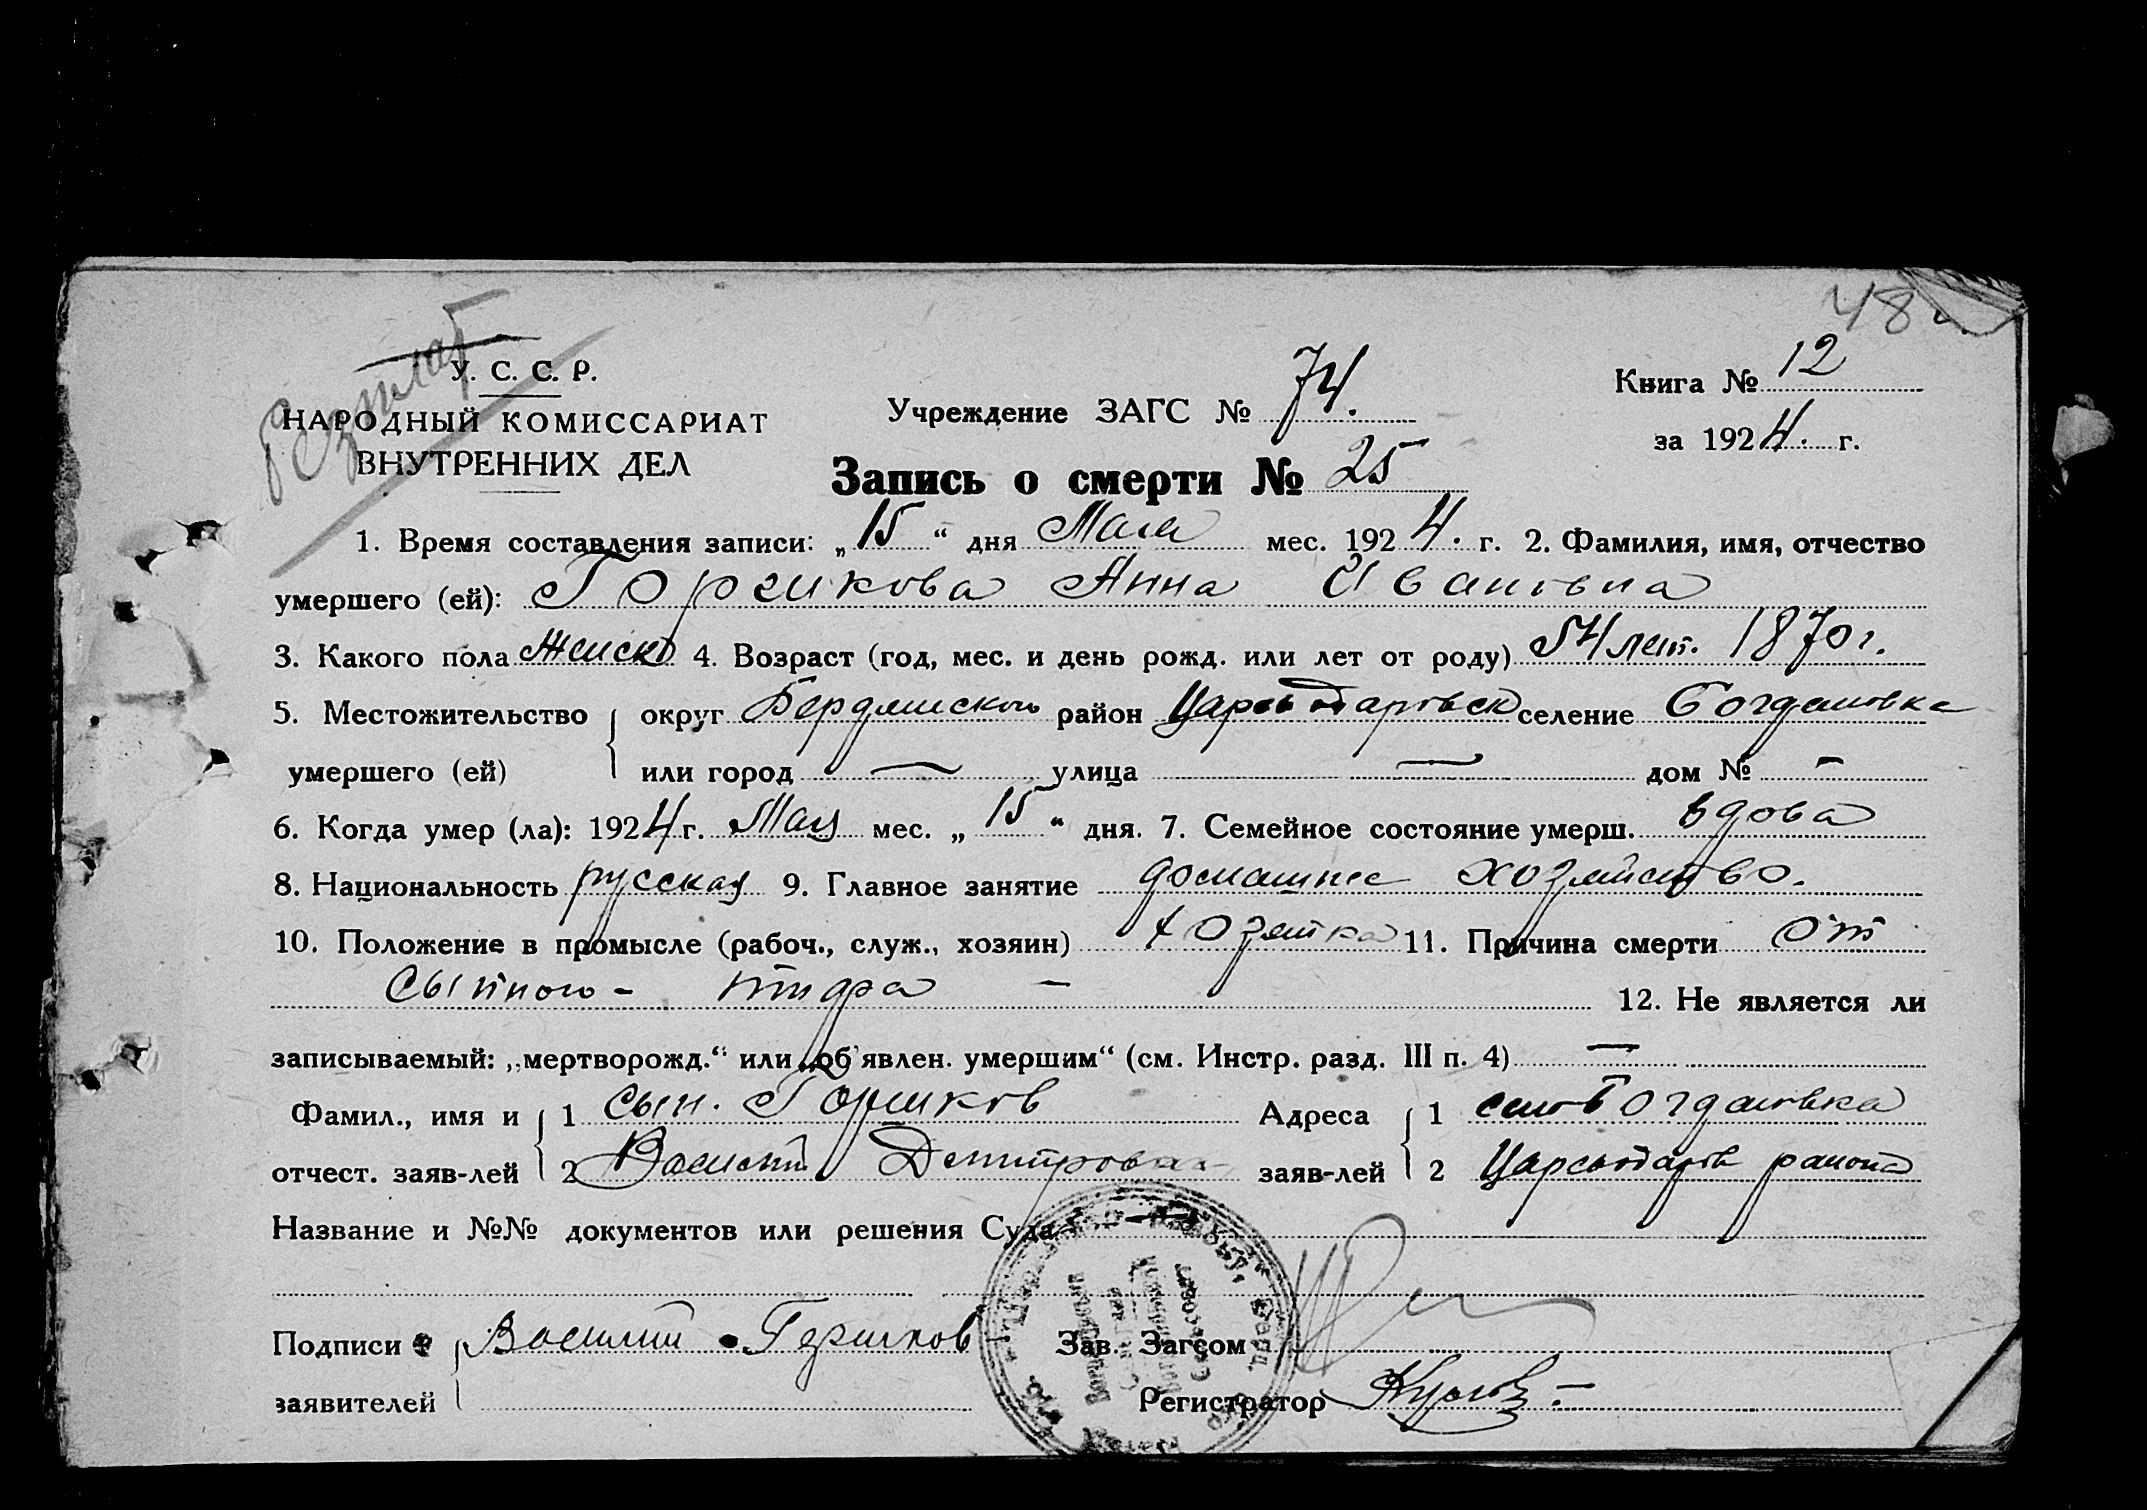 48
Безплат
У. С. С. Р.
НАРОДНЫЙ КОМИССАРИАТ
ВНУТРЕННИХ ДЕЛ
Учреждение ЗАГС № 74.
Книга № 12
за 1924. г.
Запись о смерти № 25
1. Время составления записи: „15“ дня Мая мес. 1924. г. 2. Фамилия, имя, отчество
умершего (ей): Горшкова Анна Ивановна
3. Какого пола Женск 4. Возраст (год, мес. и день рожд. или лет от роду) 54 лет. 1870 г.
5. Местожительство округ Бердянский район Царьодаровск селение Богдановка
умершего (ей) или город — улица — дом № —
6. Когда умер (ла): 1924 г. Мая мес. „15“ дня. 7. Семейное состояние умерш. вдова
8. Национальность русская 9. Главное занятие домашнее хозяйство.
10. Положение в промысле (рабоч., служ., хозяин) хозяйка 11. Причина смерти от
сыпного - тифа — 12. Не является ли
записываемый: „мертворожд.“ или „об'явлен. умершим“ (см. Инстр. разд. III п. 4) —
Фамил., имя и 1 сын. Горшков Адреса 1 село Богдановка
отчест. заяв-лей 2 Василий Дмитрович заяв-лей 2 района
Название и №№ документов или решения Суда
Подписи Василий Горшков Зав. Загсом
заявителей Регистратор